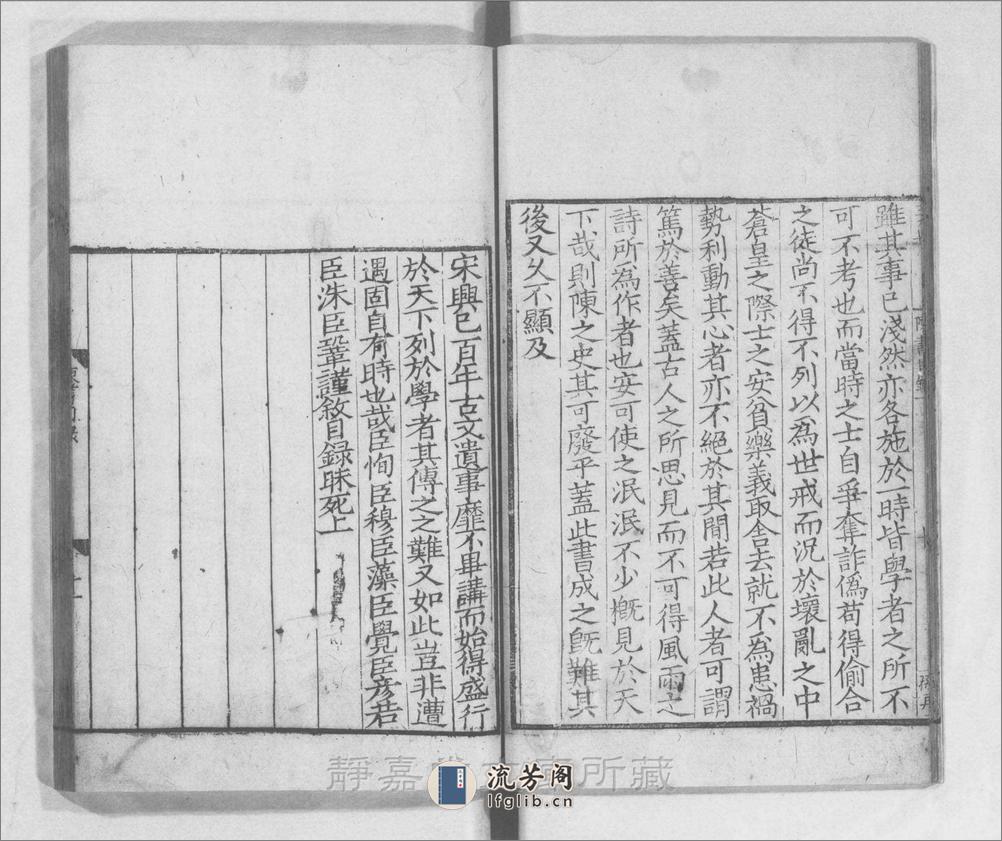 雖其事已淺然亦各施於一時皆學者之所不
可不考也而當時之士自爭奪詐僞苟得偷合
之徒尚不得不列以為世戒而況於壞亂之中
蒼皇之際士之安貧樂義取舍去就不為患禍
勢利動其心者亦不絕於其間若此人者可謂
篤於善矣蓋古人之所思見而不可得風雨之
詩所為作者也安可使之泯泯不少槪見於天
下哉則陳之史其可廢乎蓋此書成之旣難其
後又乆不顯及
宋興已百年古文遺事靡不畢講而始得盛行
於天下列於學者其傳之之難又如此豈非遭
遇固自有時也哉臣恂臣穆臣藻臣覺臣彥若
臣洙臣鞏謹敘目録昧死上
靜嘉堂文庫所藏
流芳阁
lfglib.cn